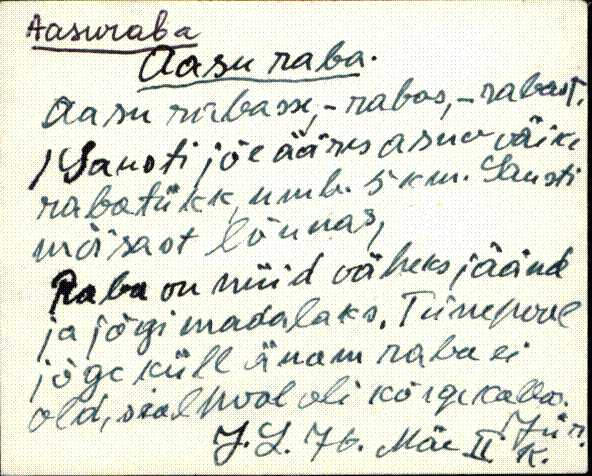 Aasuraba
Aasu raba.
Aasu rabasse, -rabas, -rabast.
Sausti jõe ääres asuv väike
rabatükk, umb. 5 km. Sausti
mõisast lõunas,
Raba on nüid väheks jäänd
ja jõgi madalaks. Tiinepool
jõge küll änam raba ei
old, sealpool oli kõrge kallas.
J. L. 76. Mäe II K.
Jür.